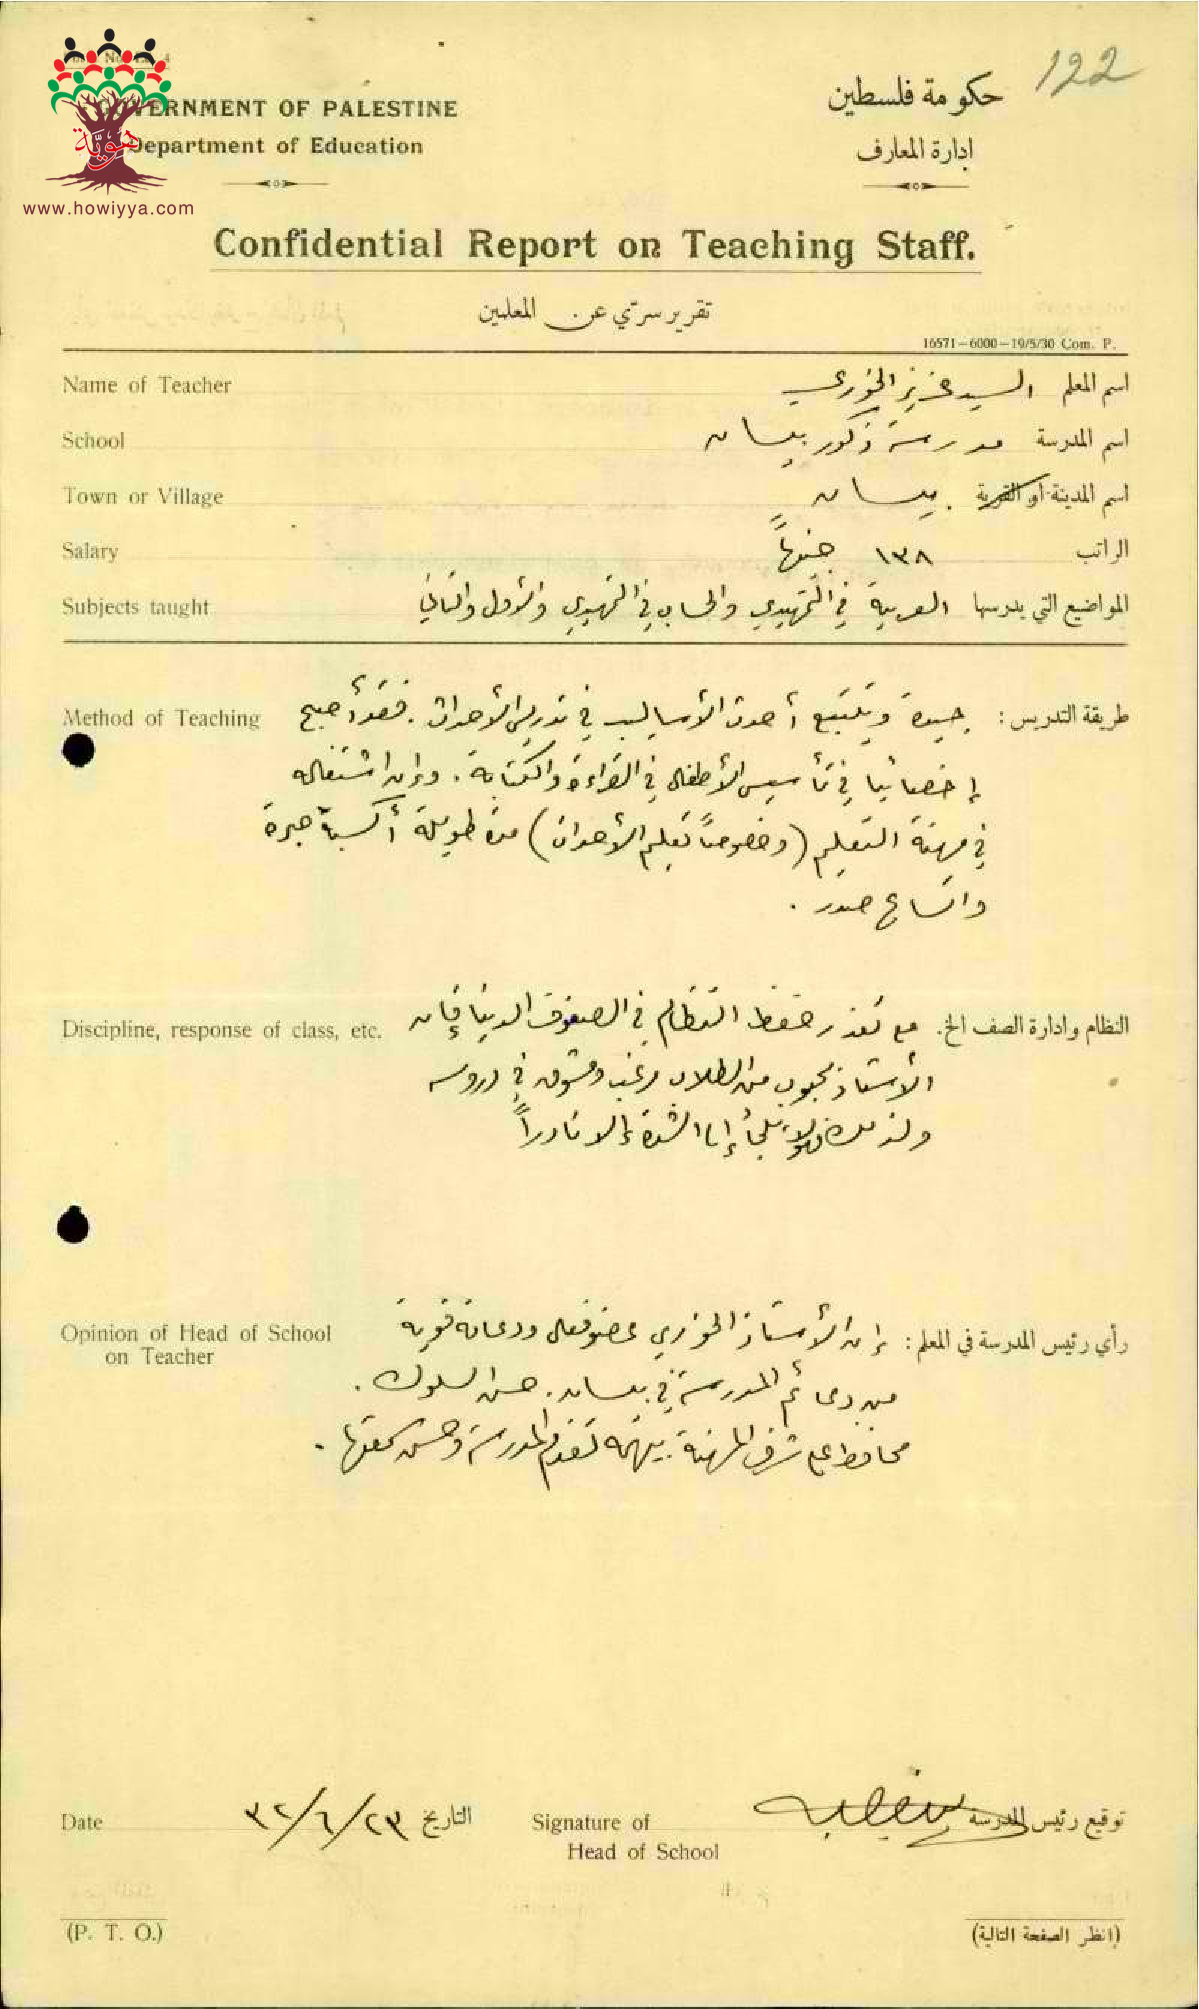 122
GOVERNMENT OF PALESTINE
Department of Education
حكومة فلسطين
ادارة المعارف
هوية
www.howiyya.com
Confidential Report on Teaching Staff.
تقرير سري عن المعلمين
16571—6000—19/5/30 Com. P.
Name of Teacher اسم المعلم السيد عزيز الخوري
School اسم المدرسة مدرسة ذكور بيسان
Town or Village اسم المدينة او القرية بيسان
Salary الراتب ١٣٨ جنيهاً
Subjects taught المواضيع التي يدرسها العربية في التمهيدي والحساب في التمهيدي والاول والثاني
Method of Teaching طريقة التدريس: جيدة ويتتبع أحدث الأساليب في تدريس الأحداث. فقد أصبح
إخصائيا في تأسيس الأطفال في القراءة والكتابة. وإن اشتغاله
في مهنة التعليم (وخصوصاً تعليم الأحداث) مدة طويلة أكسبته خبرة
واتساع صدر.
Discipline, response of class, etc. النظام وادارة الصف الخ. مع تعذر حفظ النظام في الصفوف الدنيا فإن
الأستاذ محبوب من الطلاب مرغب ومشوق في دروسه
ولذلك فهو لا يلجأ إلى الشدة إلا نادراً
Opinion of Head of School
on Teacher
رأي رئيس المدرسة في المعلم: إن الأستاذ الخوري عضو فعال ودعامة قوية
من دعائم المدرسة في بيسان. حسن السلوك.
محافظ على شرف المهنة. يهمه تقدم المدرسة وحسن سمعتها.
Date التاريخ ٢٣/٦/٣٢
Signature of
Head of School
توقيع رئيس المدرسة
(P. T. O.)
(انظر الصفحة التالية)